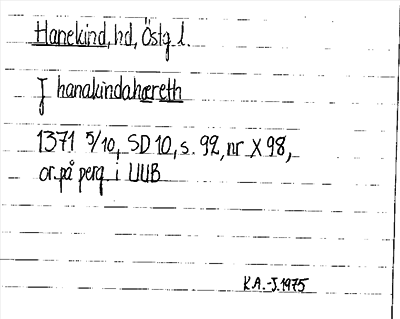 Hanekind, hd, Östg l.
J hanakindahæreth
1371 5/10, SD 10, s. 92, nr X 98,
or. på perg i UUB
K.A.-J. 1975